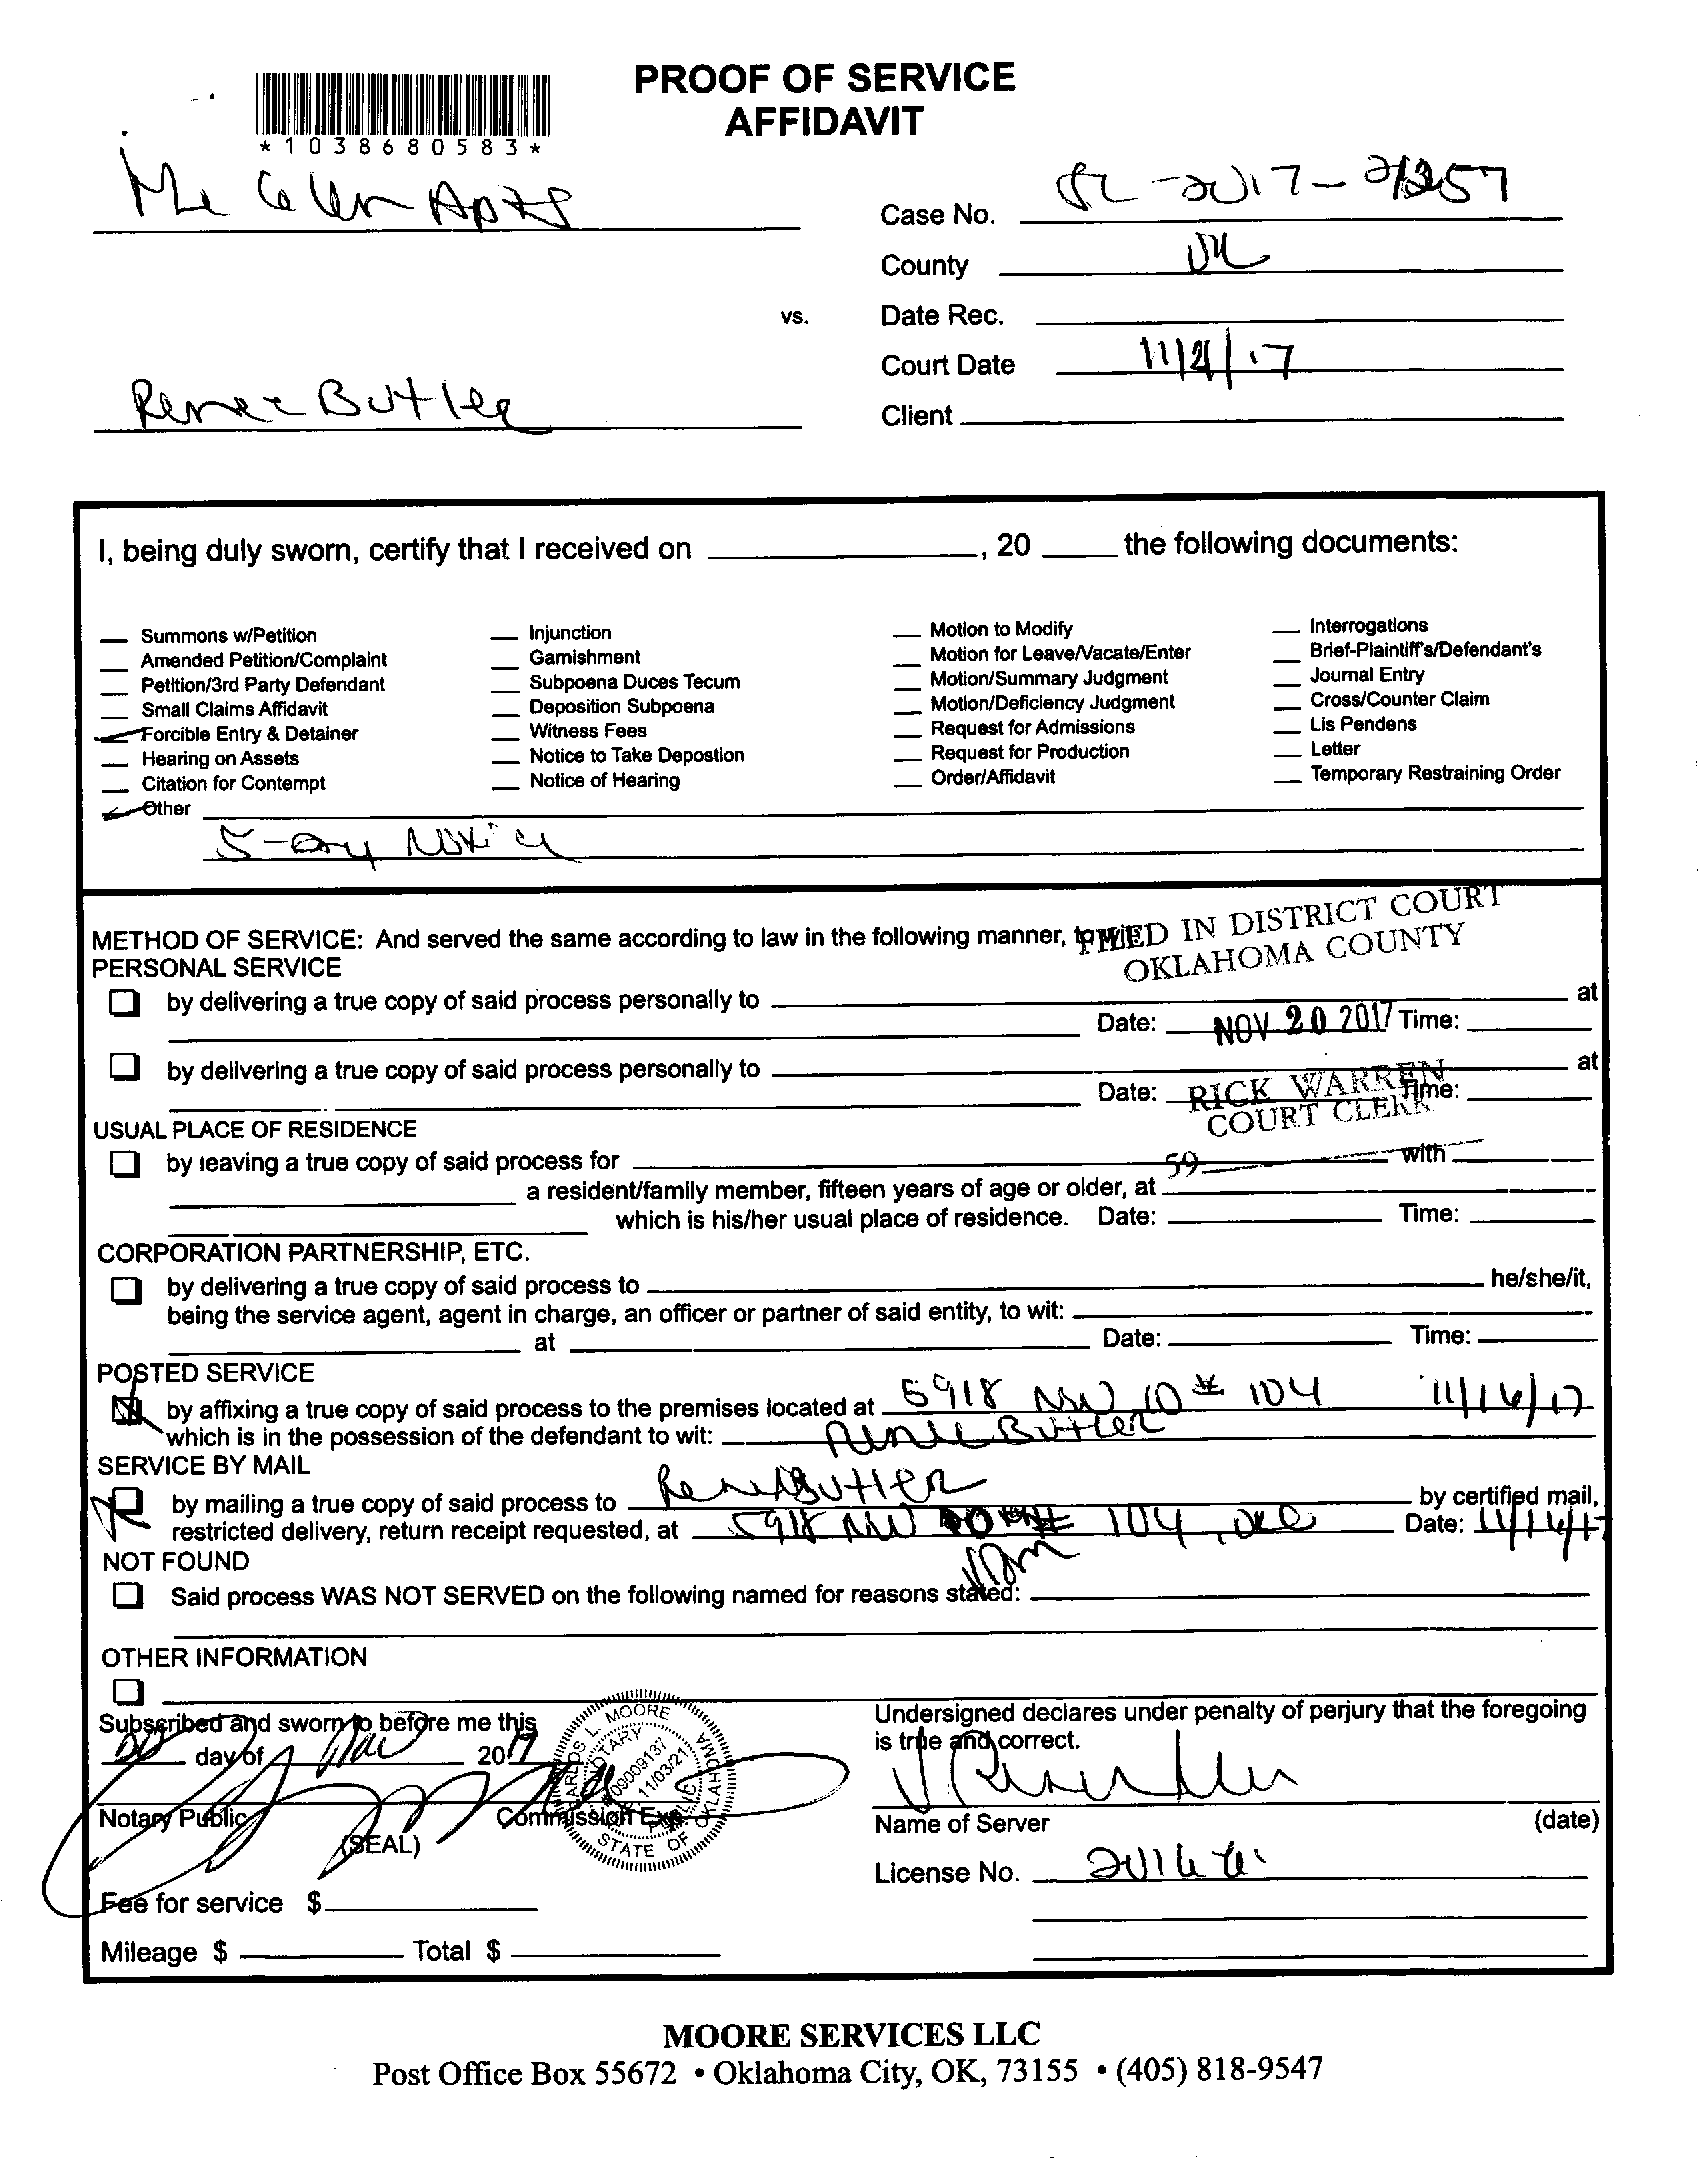 PROOF OF SERVICE
AFFIDAVIT
*1038680583*
The Glen Apts
Case No. SC-2017-21257
County OK
vs.
Date Rec.
Court Date 11/21/17
Renee Butler
Client
I, being duly sworn, certify that I received on , 20 the following documents:
Summons w/Petition
Amended Petition/Complaint
Petition/3rd Party Defendant
Small Claims Affidavit
Forcible Entry & Detainer
Hearing on Assets
Citation for Contempt
Other
Injunction
Garnishment
Subpoena Duces Tecum
Deposition Subpoena
Witness Fees
Notice to Take Depostion
Notice of Hearing
Motion to Modify
Motion for Leave/Vacate/Enter
Motion/Summary Judgment
Motion/Deficiency Judgment
Request for Admissions
Request for Production
Order/Affidavit
Interrogations
Brief-Plaintiff's/Defendant's
Journal Entry
Cross/Counter Claim
Lis Pendens
Letter
Temporary Restraining Order
5-Day Notice
METHOD OF SERVICE: And served the same according to law in the following manner, to wit:
FILED IN DISTRICT COURT
OKLAHOMA COUNTY
PERSONAL SERVICE
by delivering a true copy of said process personally to at
Date: NOV 20 2017 Time:
by delivering a true copy of said process personally to at
Date: Time:
RICK WARREN
COURT CLERK
USUAL PLACE OF RESIDENCE
59
by leaving a true copy of said process for with
a resident/family member, fifteen years of age or older, at
which is his/her usual place of residence. Date: Time:
CORPORATION PARTNERSHIP, ETC.
by delivering a true copy of said process to he/she/it,
being the service agent, agent in charge, an officer or partner of said entity, to wit:
at Date: Time:
POSTED SERVICE
by affixing a true copy of said process to the premises located at 5918 NW 10 # 104 11/16/17
which is in the possession of the defendant to wit: Renee Butler
SERVICE BY MAIL
by mailing a true copy of said process to Renee Butler by certified mail,
restricted delivery, return receipt requested, at 5918 NW 10 # 104, OKC Date: 11/16/17
NOT FOUND
Said process WAS NOT SERVED on the following named for reasons stated:
OTHER INFORMATION
Subscribed and sworn to before me this
20 day of Nov 2017
Notary Public
(SEAL)
Commission Exp.
CARLOS L. MOORE
NOTARY
#09009137
11/03/21
PUBLIC
STATE OF OKLAHOMA
Undersigned declares under penalty of perjury that the foregoing
is true and correct.
Name of Server (date)
License No.
Fee for service $
Mileage $ Total $
MOORE SERVICES LLC
Post Office Box 55672 • Oklahoma City, OK, 73155 • (405) 818-9547